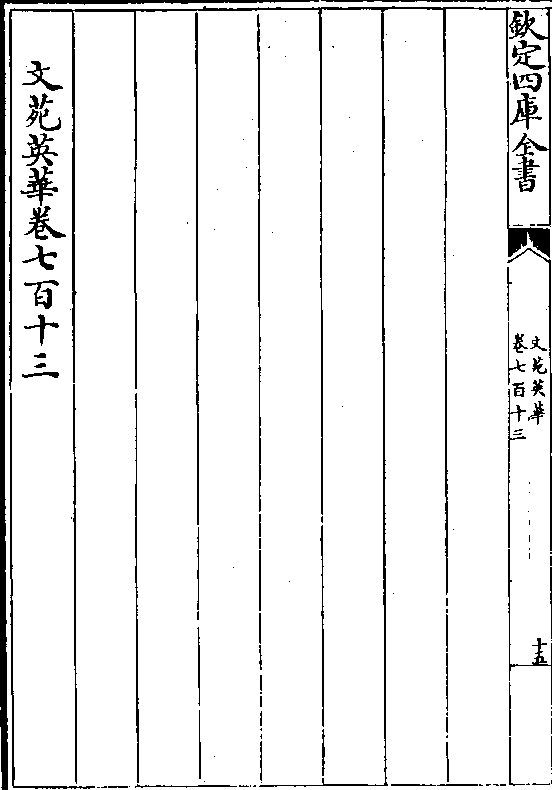 欽定四庫全書
文苑英華
卷七百十三
十五
文苑英華卷七百十三